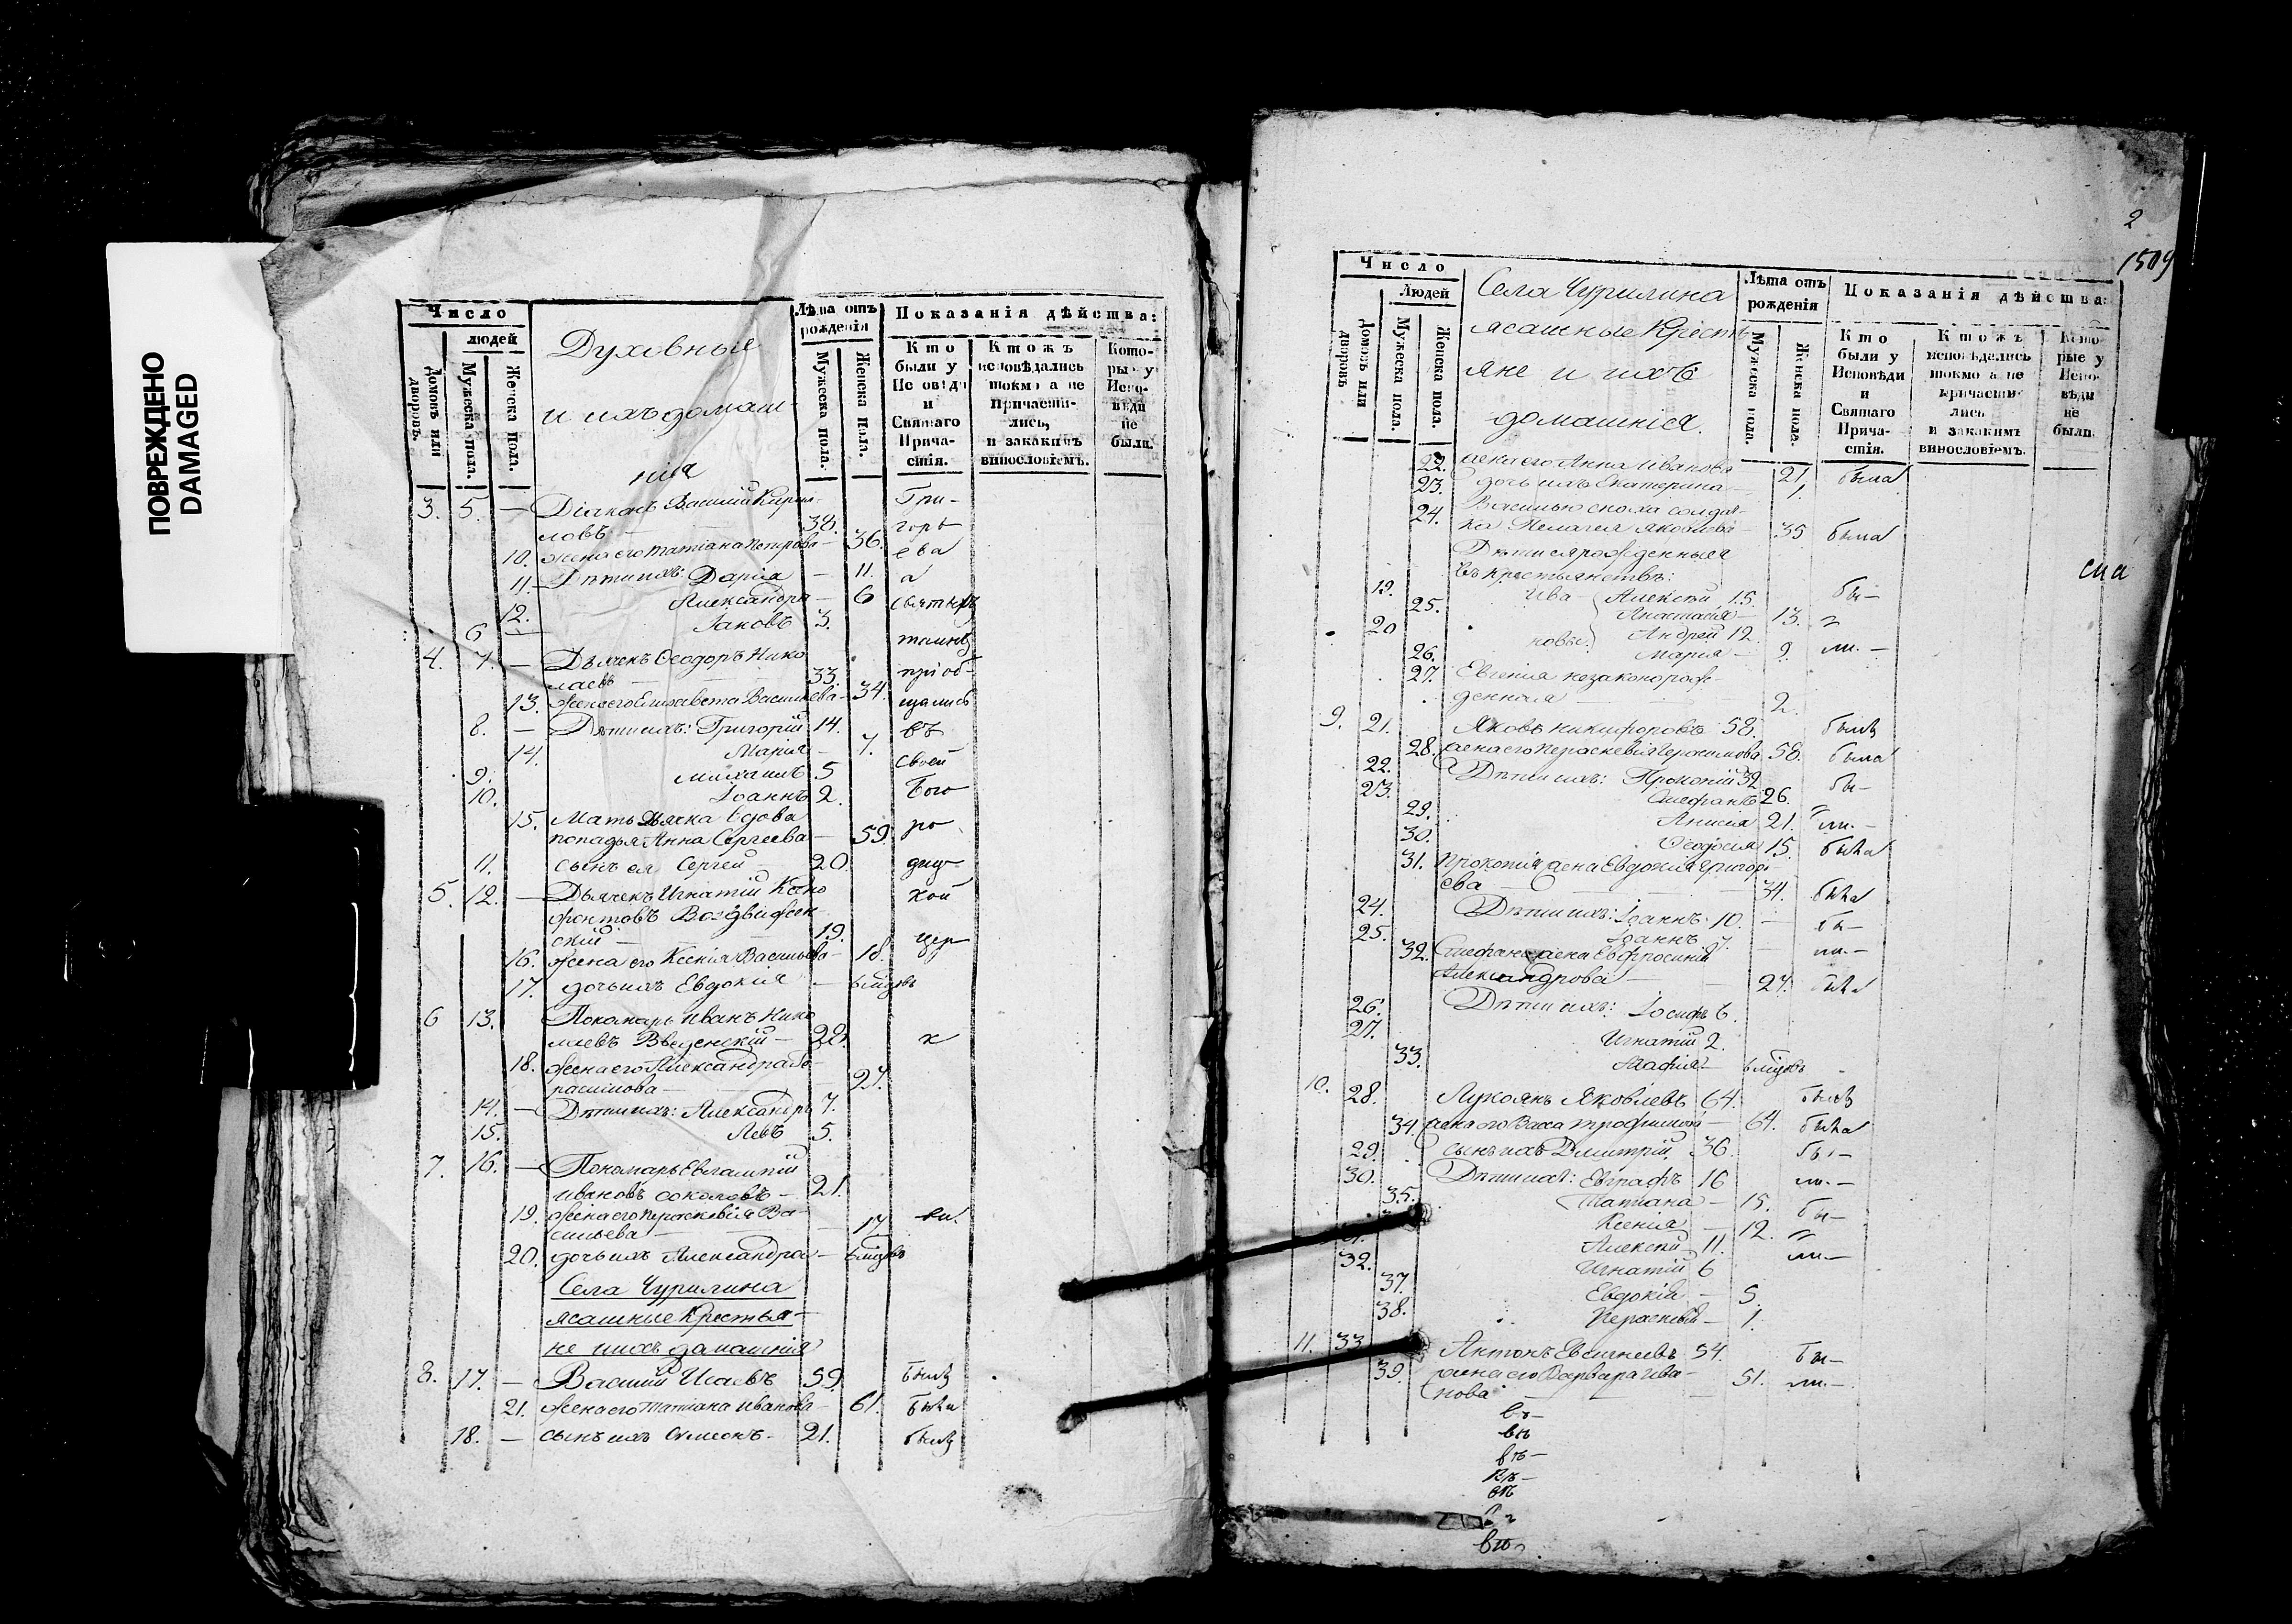 ПОВРЕЖДЕНО
DAMAGED
Число
людей
Домовъ или дворовъ.
Мужеска пола.
Женска пола.
Духовныя
и ихъ домаш-
нія
Лѣта отъ рожденія
Мужеска пола.
Женска пола.
Показанія дѣйства:
Кто были у Исповѣди и Святаго Прича-стія.
Ктожъ исповѣдались токмо а не Причасти-лись, и закакимъ винословіемъ.
Кото-рые у Испо-вѣди не были.
3. 5. — Діаконъ Василій Кирил- Гри-
ловъ — 38. горь
10. жена его Татіана Петрова — 36. ева
11. Дѣти ихъ: Дарія — 11. а
12. Александра — 6 святыхъ
6 — Іаковъ 3. таинъ
4. 7. — Дьячекъ Ѳеодоръ Нико пріоб-
лаевъ — 33. щались
13. жена его Елизавета Васильева — 34.
8. — Дѣти ихъ: Григорій 14. въ
14. Марія — 7. своей
9. Михаилъ 5
10. Іоаннъ 2. Бого
15. Мать Дьячка вдова
попадья Анна Сергеева — 59. ро
11. сынъ ея Сергей — 20. диц-
5. 12. — Дьячекъ Игнатій Ксено кой
фонтовъ Воздвижен
скій — 19. цер
16. жена его Ксенія Васильева — 18.
17. дочь ихъ Евдокія — 6 мѣцовъ
6 13. Пономарь Иванъ Нико
лаевъ Введенскій — 28. к
18. жена его Александра
расимова — 27.
14. — Дѣти ихъ: Александръ 7.
15. Левъ 5.
7. 16. — Пономарь Евлампій
Ивановъ Соколовъ — 21.
19. жена его Парасковія Ва- ви.
сильева — 17
20. дочь ихъ Александра — 6 мѣцовъ
Села Чурилина
ясашные Крестья-
не ихъ домашнія
8. 17. — Василій Исаевъ 59. былъ
21. жена его Татіана Иванова — 61. была
18. — сынъ ихъ Симеонъ — 21. былъ
2
1509
Число
Людей
Домовъ или дворовъ
Мужеска пола.
Женска пола.
Села Чурилина
ясашные Кресть
яне и ихъ
домашнія.
Лѣта отъ рожденія
Мужеска пола.
Женска пола.
Показанія дѣйства:
Кто были у Исповѣди и Святаго Прича-стія.
Ктожъ исповѣдались токмо а не причасти-лись и закакимъ винословіемъ.
Кото-рые у Испо-вѣди не были.
22. жена его Анна Иванова 21. была
23. дочь ихъ Екатерина — 1.
24. Василью сноха солдат
ка Пелагея Яковлева — 35 была
Дѣти ея рожденныя
въ крестьянствѣ:
19. Ива- Алексѣй 15. бы—
25. Анастасія — 13.
20 новы: Андрей 12
26. Марія — 9. ли. —
27. Евгенія незаконорож-
денная — 2.
9. 21. Яковъ Никифоровъ 58. былъ
28. жена его Пераскевія Герасимова 58. была
22. Дѣти ихъ: Прокопій 32. бы—
23. Стефанъ 26.
29. Анисія 21. ли. —
30. Ѳеодосія 15. была
31. Прокопія жена Евдокія Григорь
ева — 34. была
24. Дѣти ихъ: Іоаннъ 10. — бы—
25. Іоаннъ 7. — ли. —
32. Стефана жена Евфросинія
Александрова — 27. была
26. Дѣти ихъ: Іосифъ 6.
27. Игнатій 2.
33. 6 мѣцовъ
10. 28. Лукоянъ Яковлевъ 64. былъ
34. жена его Васса Трофимова — 64. была
29. сынъ ихъ Димитрій 36. бы—
30. Дѣти ихъ: Евграфъ 16 ли. —
35. Татіана — 15. бы—
Ксенія — 12.
Алексѣй 11. ли.—
32. Игнатій 6
37. Евдокія — 5.
38. Пераскевія — 1.
11. 33. Антонъ Евсигнеевъ 54. бы—
39. жена его Варвара Ива- 51. ли.—
нова